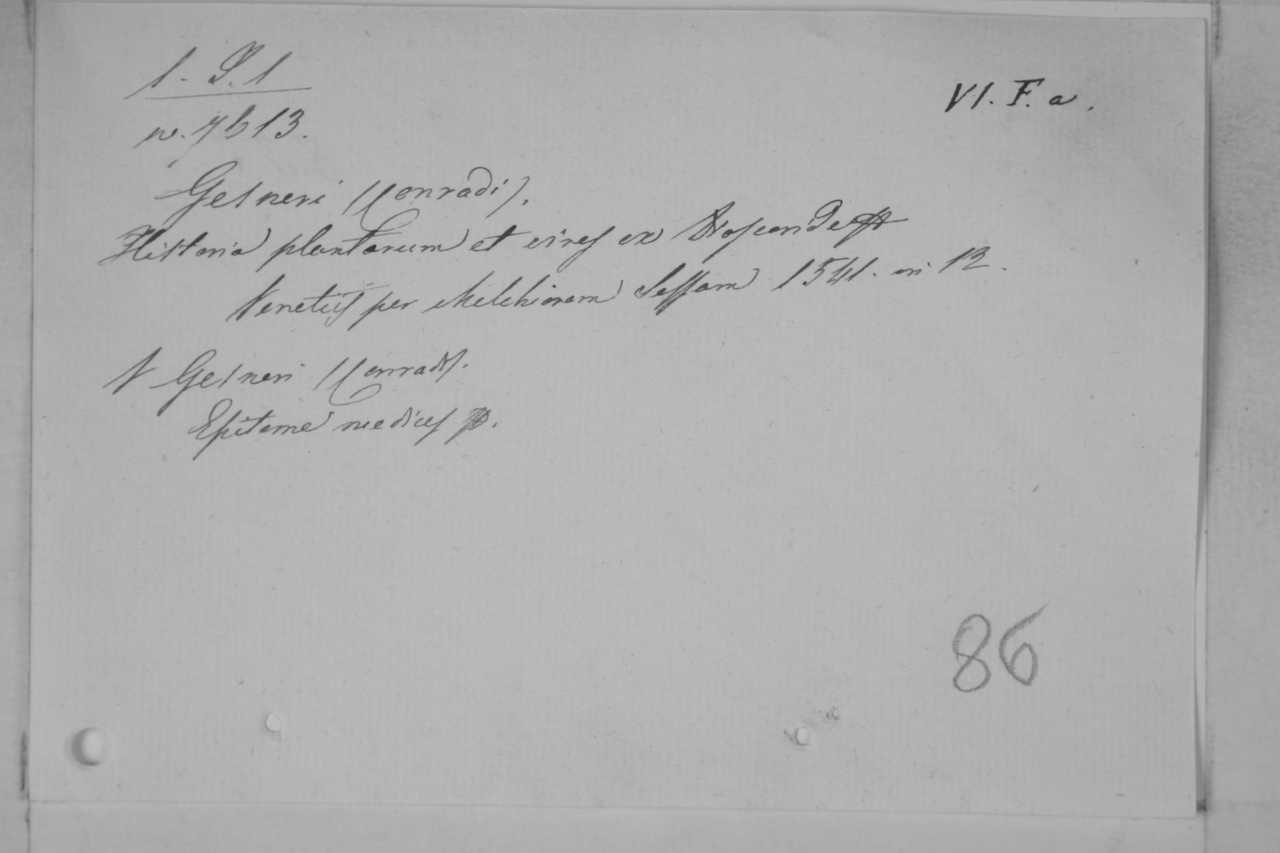 1. S. 1
VI. F. a.
w. 7613.
Gesneri (Conradi).
Historia plantarum et vires ex Dioscoride
Venetiis per Melchiorem Sessam 1541. in 12.
Gesneri (Conradi).
Epitome medices
86